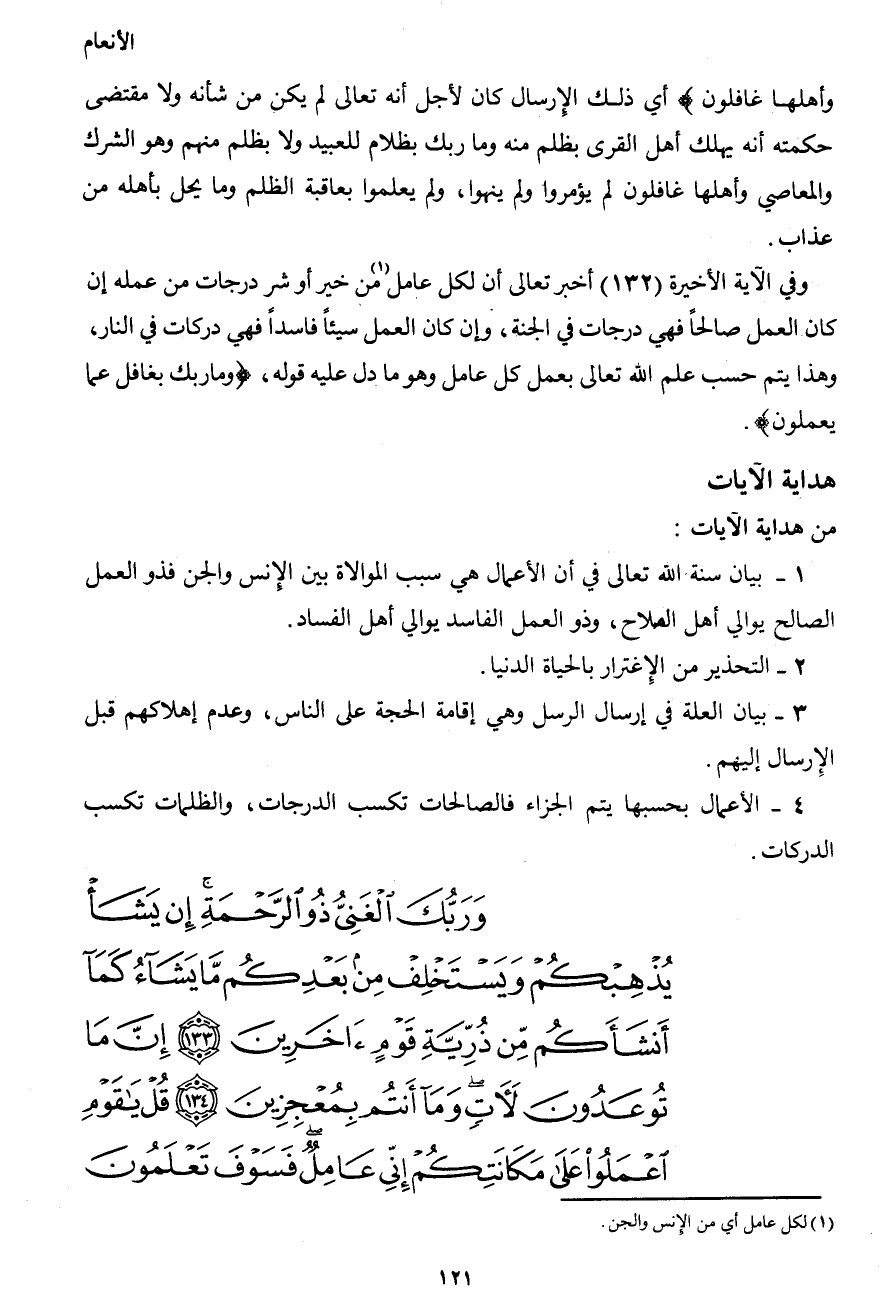 الأنعام
وأهلهـا غافلون ﴾ أي ذلـك الإرسال كان لأجل أنه تعالى لم يكن من شأنه ولا مقتضى
حكمته أنه يهلك أهل القرى بظلم منه وما ربك بظلام للعبيد ولا بظلم منهم وهو الشرك
والمعاصي وأهلها غافلون لم يؤمروا ولم ينهوا، ولم يعلموا بعاقبة الظلم وما يحل بأهله من
عذاب .
وفي الآية الأخيرة (١٣٢) أخبر تعالى أن لكل عامل(١) من خير أو شر درجات من عمله إن
كان العمل صالحاً فهي درجات في الجنة، وإن كان العمل سيئاً فاسداً فهي دركات في النار،
وهذا يتم حسب علم الله تعالى بعمل كل عامل وهو ما دل عليه قوله، ﴿وماربك بغافل عما
يعملون﴾ .
هداية الآيات
من هداية الآيات :
١ ـ بيان سنة الله تعالى في أن الأعمال هي سبب الموالاة بين الإنس والجن فذو العمل
الصالح يوالي أهل الصلاح، وذو العمل الفاسد يوالي أهل الفساد.
٢ ـ التحذير من الإغترار بالحياة الدنيا.
٣ ـ بيان العلة في إرسال الرسل وهي إقامة الحجة على الناس، وعدم إهلاكهم قبل
الإرسال إليهم.
٤ ـ الأعمال بحسبها يتم الجزاء فالصالحات تكسب الدرجات، والظلمات تكسب
الدركات .
وَرَبُّكَ ٱلْغَنِيُّ ذُو ٱلرَّحْمَةِۚ إِن يَشَأْ
يُذْهِبْكُمْ وَيَسْتَخْلِفْ مِنۢ بَعْدِكُم مَّا يَشَآءُ كَمَآ
أَنشَأَكُم مِّن ذُرِّيَّةِ قَوْمٍ ءَاخَرِينَ ﴿١٣٣﴾ إِنَّ مَا
تُوعَدُونَ لَءَاتٍۖ وَمَآ أَنتُم بِمُعْجِزِينَ ﴿١٣٤﴾ قُلْ يَٰقَوْمِ
ٱعْمَلُوا۟ عَلَىٰ مَكَانَتِكُمْ إِنِّي عَامِلٌۖ فَسَوْفَ تَعْلَمُونَ
(١) لكل عامل أي من الإنس والجن.
١٢١